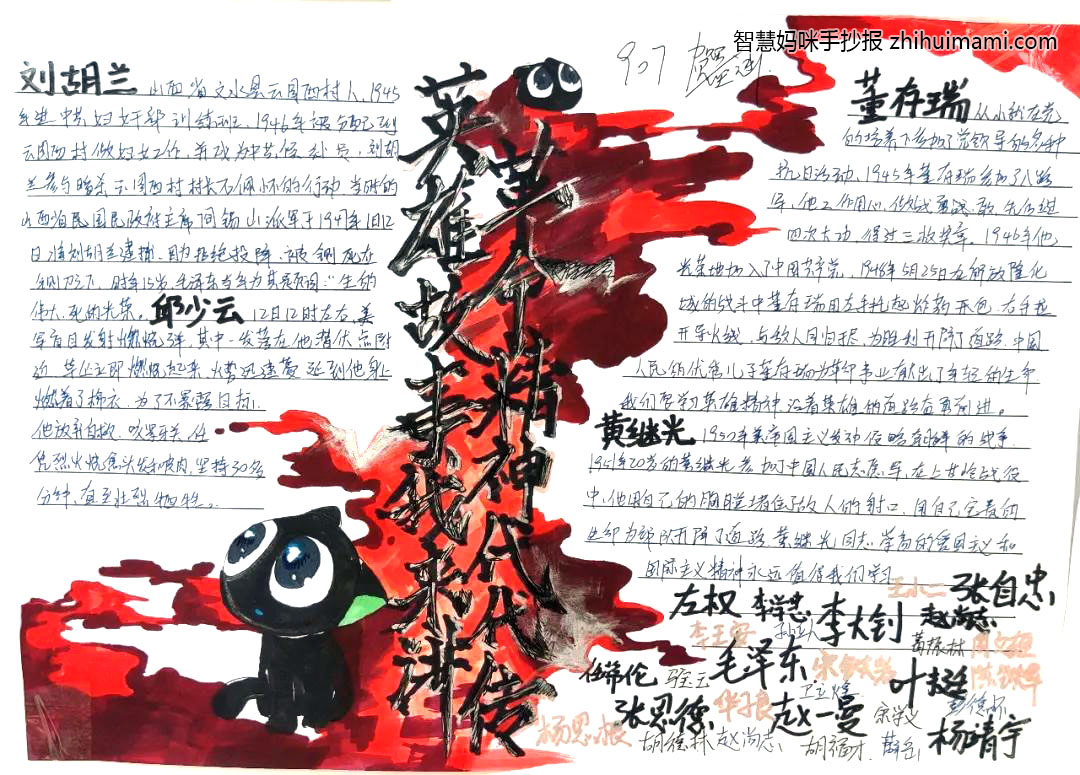 智慧妈咪手抄报 zhihuimami.com
907
英雄故事我来讲
革命精神代代传
刘胡兰 山西省文水县云周西村人,1945
年进中共妇女干部训练班,1946年被分配到
云周西村做妇女工作,并成为中共候补党员,刘胡
兰参与暗杀云周西村村长石佩怀的行动 当时的
山西省民国民政府主席阎锡山派军于1947年1日12
日 将刘胡兰逮捕,因为拒绝投降,被铡死在
铡刀下,时年15岁,毛泽东为其题词:"生的
伟大,死的光荣。
邱少云 12日12时左右,美
军盲目发射燃烧弹,其中一发落在他潜伏点附
近,草丛立即燃烧起来,火势迅速蔓延到他身上
燃着了棉衣,为了不暴露目标,
他放弃自救,咬紧牙关,任
凭烈火烧焦头发和皮肉,坚持30多
分钟,直至壮烈牺牲。
董存瑞 从小就在党
的培养下参加了党领导的各种
抗日活动,1945年董存瑞参加了八路
军,他工作用心,作战勇敢,先后
四次大功,得过三枚奖章。1946年他
光荣地加入了中国共产党,1948年5月25日在解放隆化
城的战斗中董存瑞用左手托起炸药包,右手拉
开导火线,与敌人同归于尽,为胜利开辟了道路,中国
人民的优秀儿子董存瑞为革命事业献出了年轻的生命
我们要学习英雄精神,沿着英雄的道路奋勇前进。
黄继光 1950年美帝国主义发动侵略朝鲜的战争
1951年20岁的黄继光参加了中国人民志愿军,在上甘岭战役
中,他用自己的胸膛堵住了敌人的射口,用自己宝贵的
生命为部队开辟了道路,黄继光同志崇高的爱国主义和
国际主义精神永远值得我们学习
王小二 张自忠
左权 李兆麟 李大钊 赵尚志
毛泽东 叶挺
彭德怀
张思德 赵一曼 宋学义 杨靖宇
杨思根 胡德林 赵尚志 胡福才